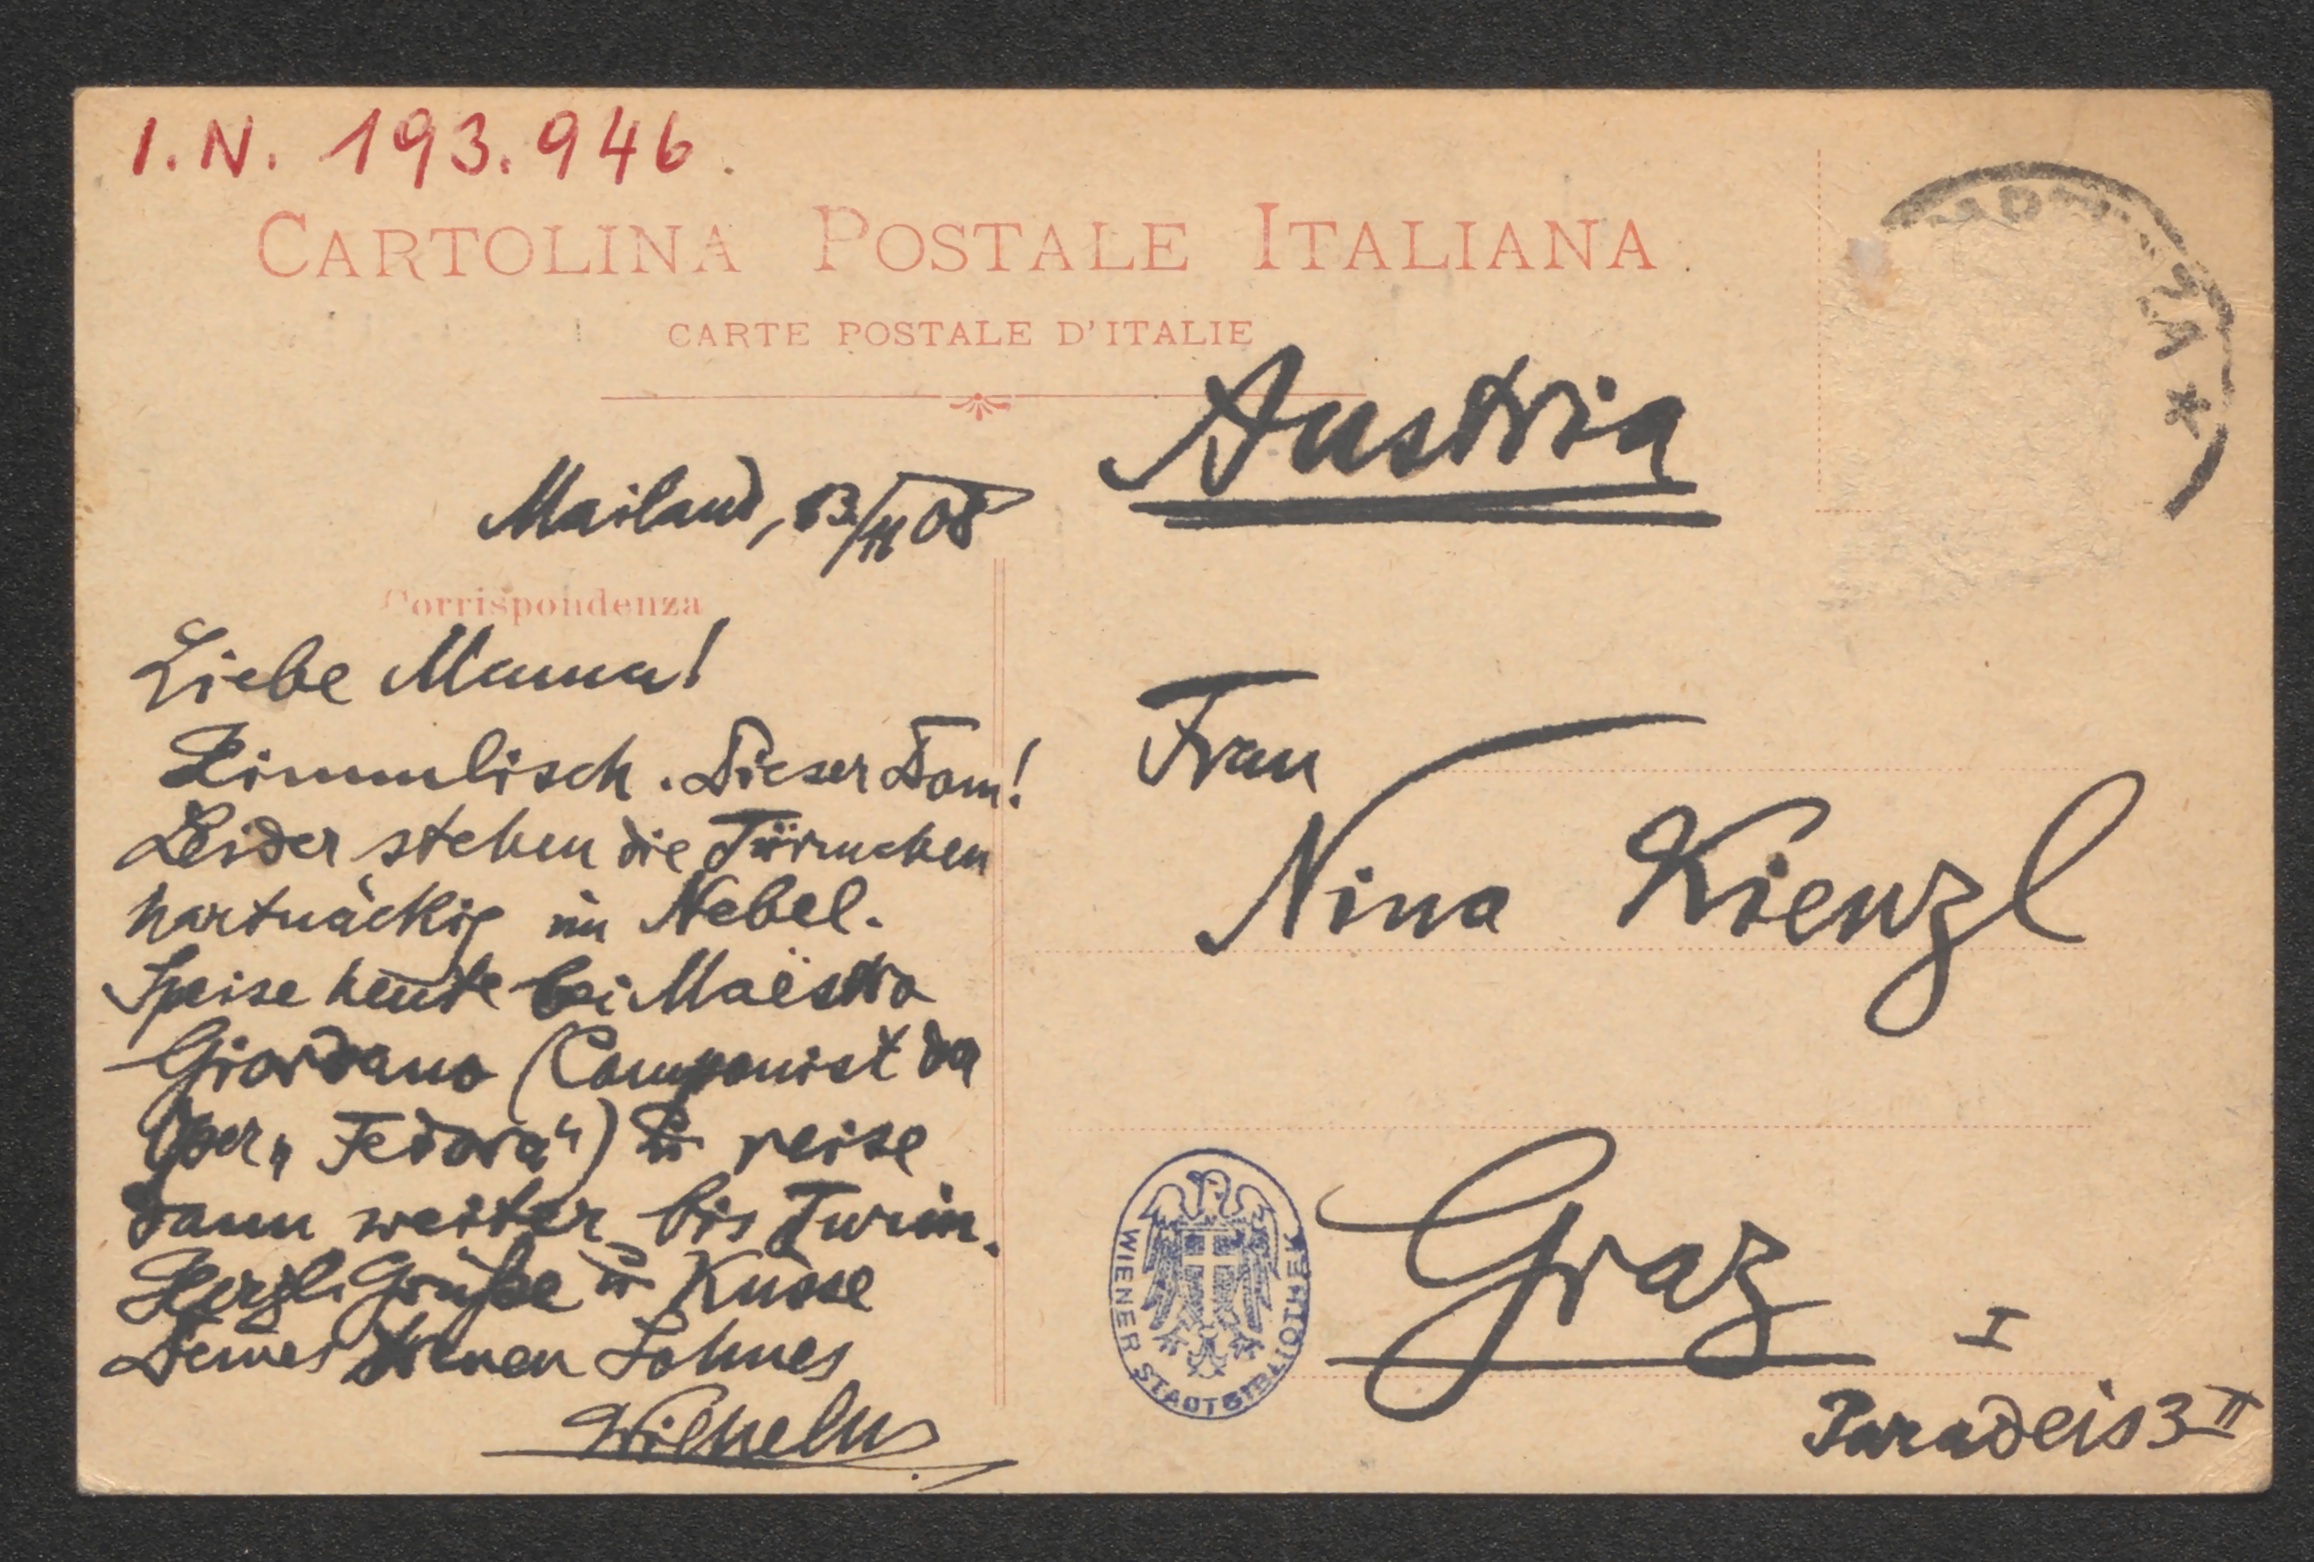 I.N. 193.946.
CARTOLINA POSTALE ITALIANA
CARTE POSTALE D'ITALIE
Austria
Mailand, 08
Corrispondenza
Liebe Mama!
Himmlisch. Dieser Dom!
Leider stehen die Türmchen
hartnäckig im Nebel.
Speise heute bei Maëstro
Giordano (Componist der
Oper „Fedora“) u reise
dann weiter bis Turin.
Herzl. Grüße u Küsse
Deines treuen Sohnes
Wilhelm
Frau
Nina Kienzl
Graz
I
Paradeis 3 II
WIENER STADTBIBLIOTHEK